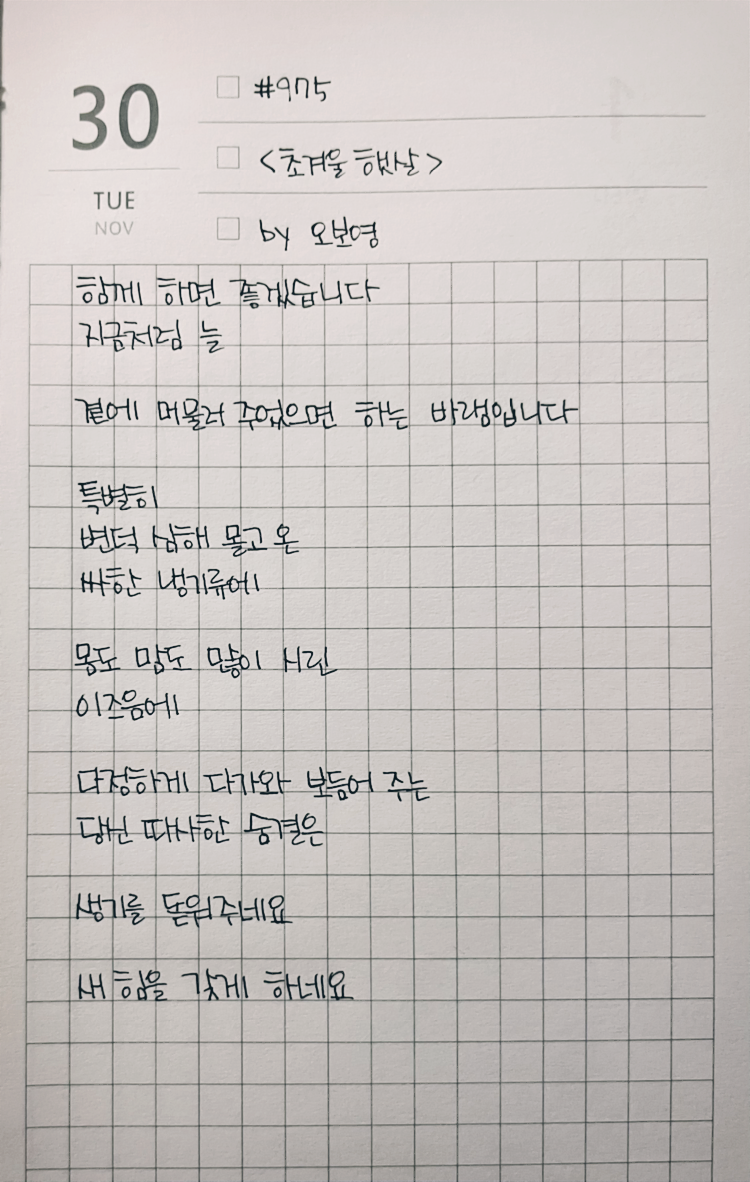 30
TUE
NOV
#975
<초겨울 햇살>
by 오보영
함께 하면 좋겠습니다
지금처럼 늘
곁에 머물러 주었으면 하는 바램입니다
특별히
변덕 심해 몰고 온
싸한 냉기류에
몸도 맘도 많이 시린
이즈음에
다정하게 다가와 보듬어 주는
당신 따사한 숨결은
생기를 돋워주네요
새 힘을 갖게 하네요